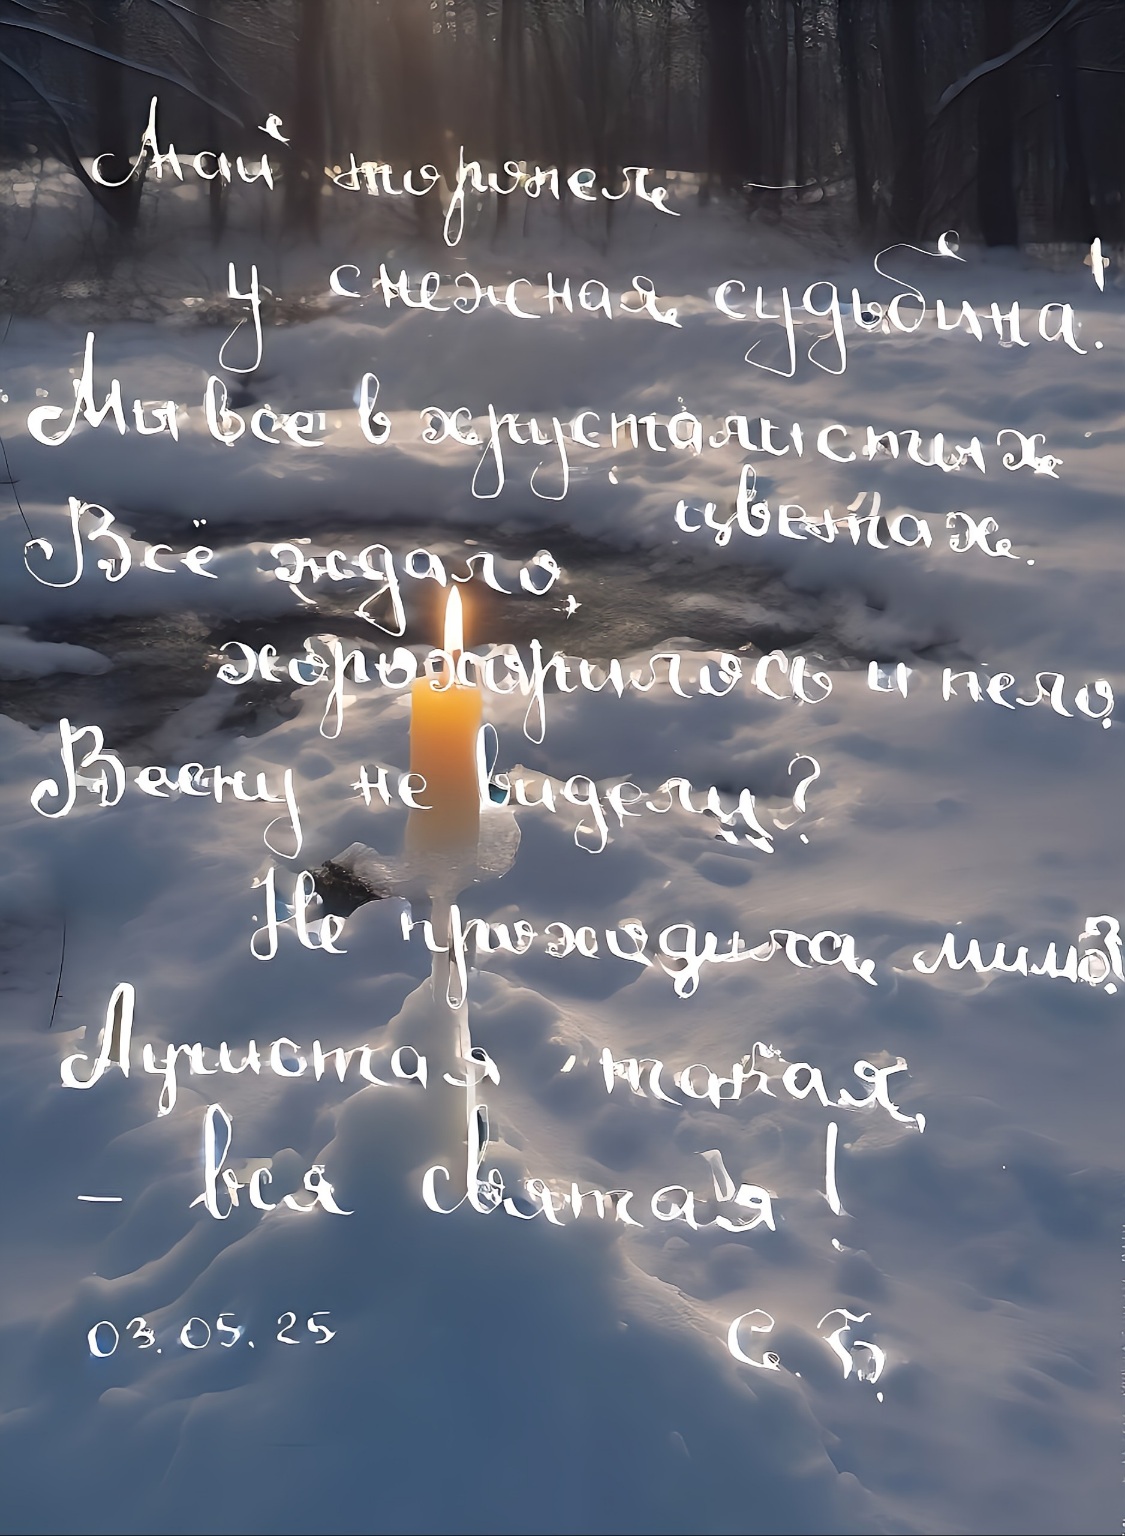 Май
у снежная судьбина!
Мы все в хрусталистых
цветах.
Всё ждало,
и пело,
Весну не видели?
Не проходила, мимо?
Лучистая такая,
– вся святая!
03.05.25
С. Б.